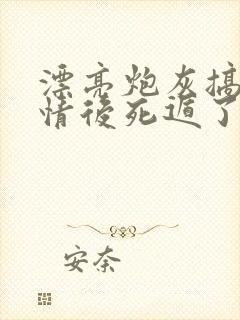 漂亮炮灰搞
情後死遁了
安奈